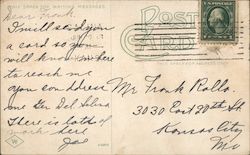 THIS SPACE FOR WRITING MESSAGES
POST
CARD
Dear Frank.
I will send you
a card so you
will know where
to reach me
you can address
me Gen Del Salina
There is lots of
work here
Joe
Mr Frank Rollo.
3030 East 20th St
Kansas City
Mo